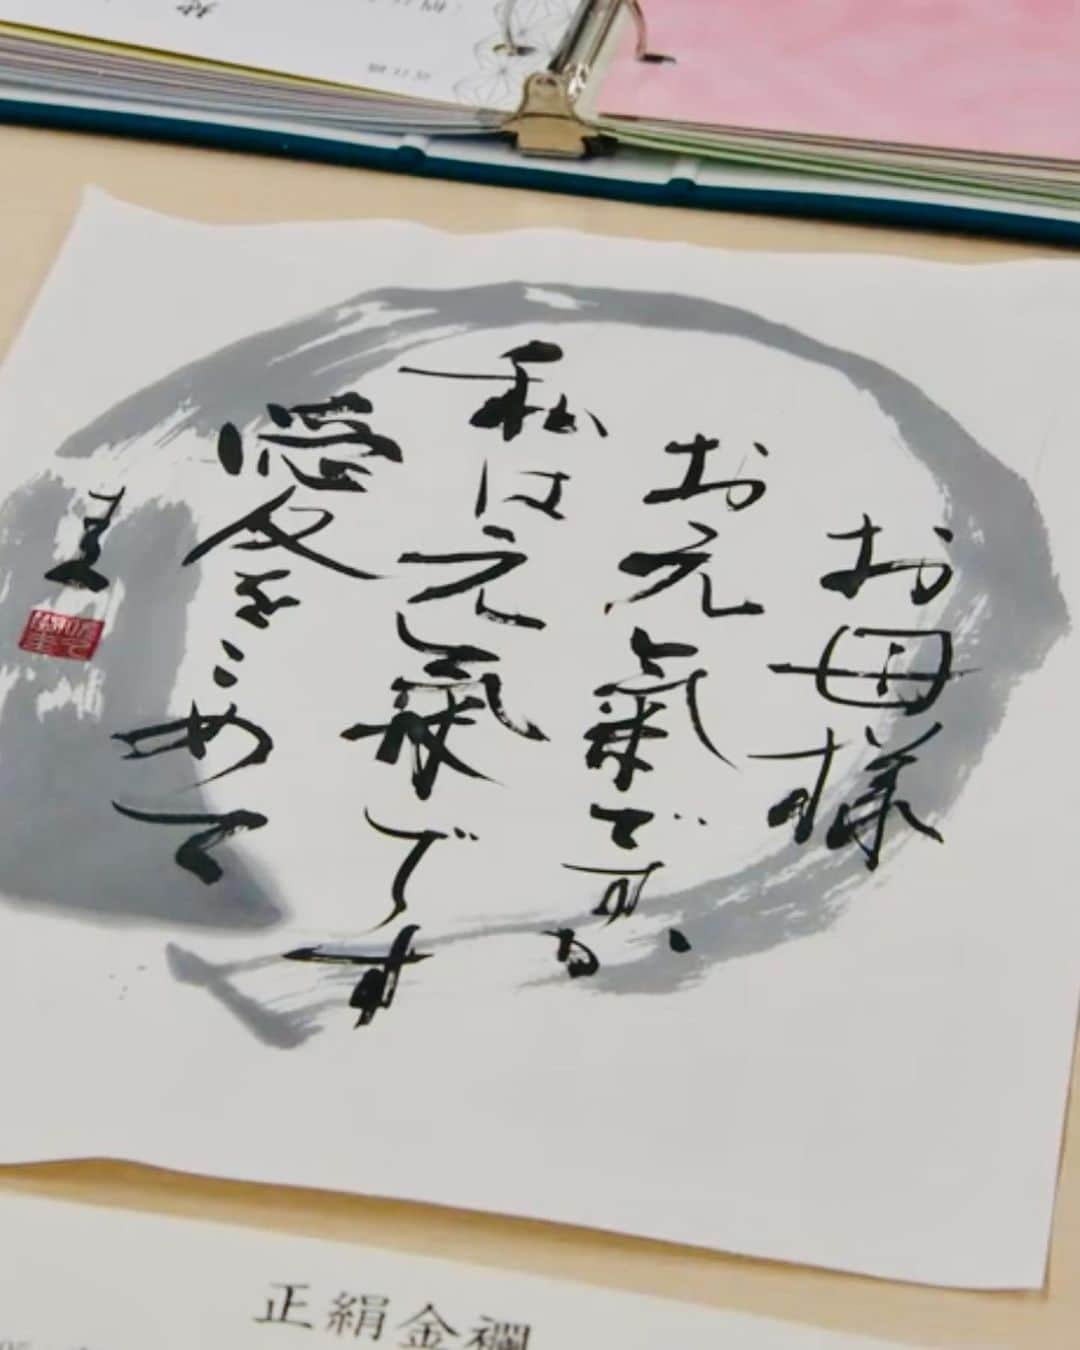 お母様
お元氣ですか
私は元氣です
愛をこめて
正絹金襴